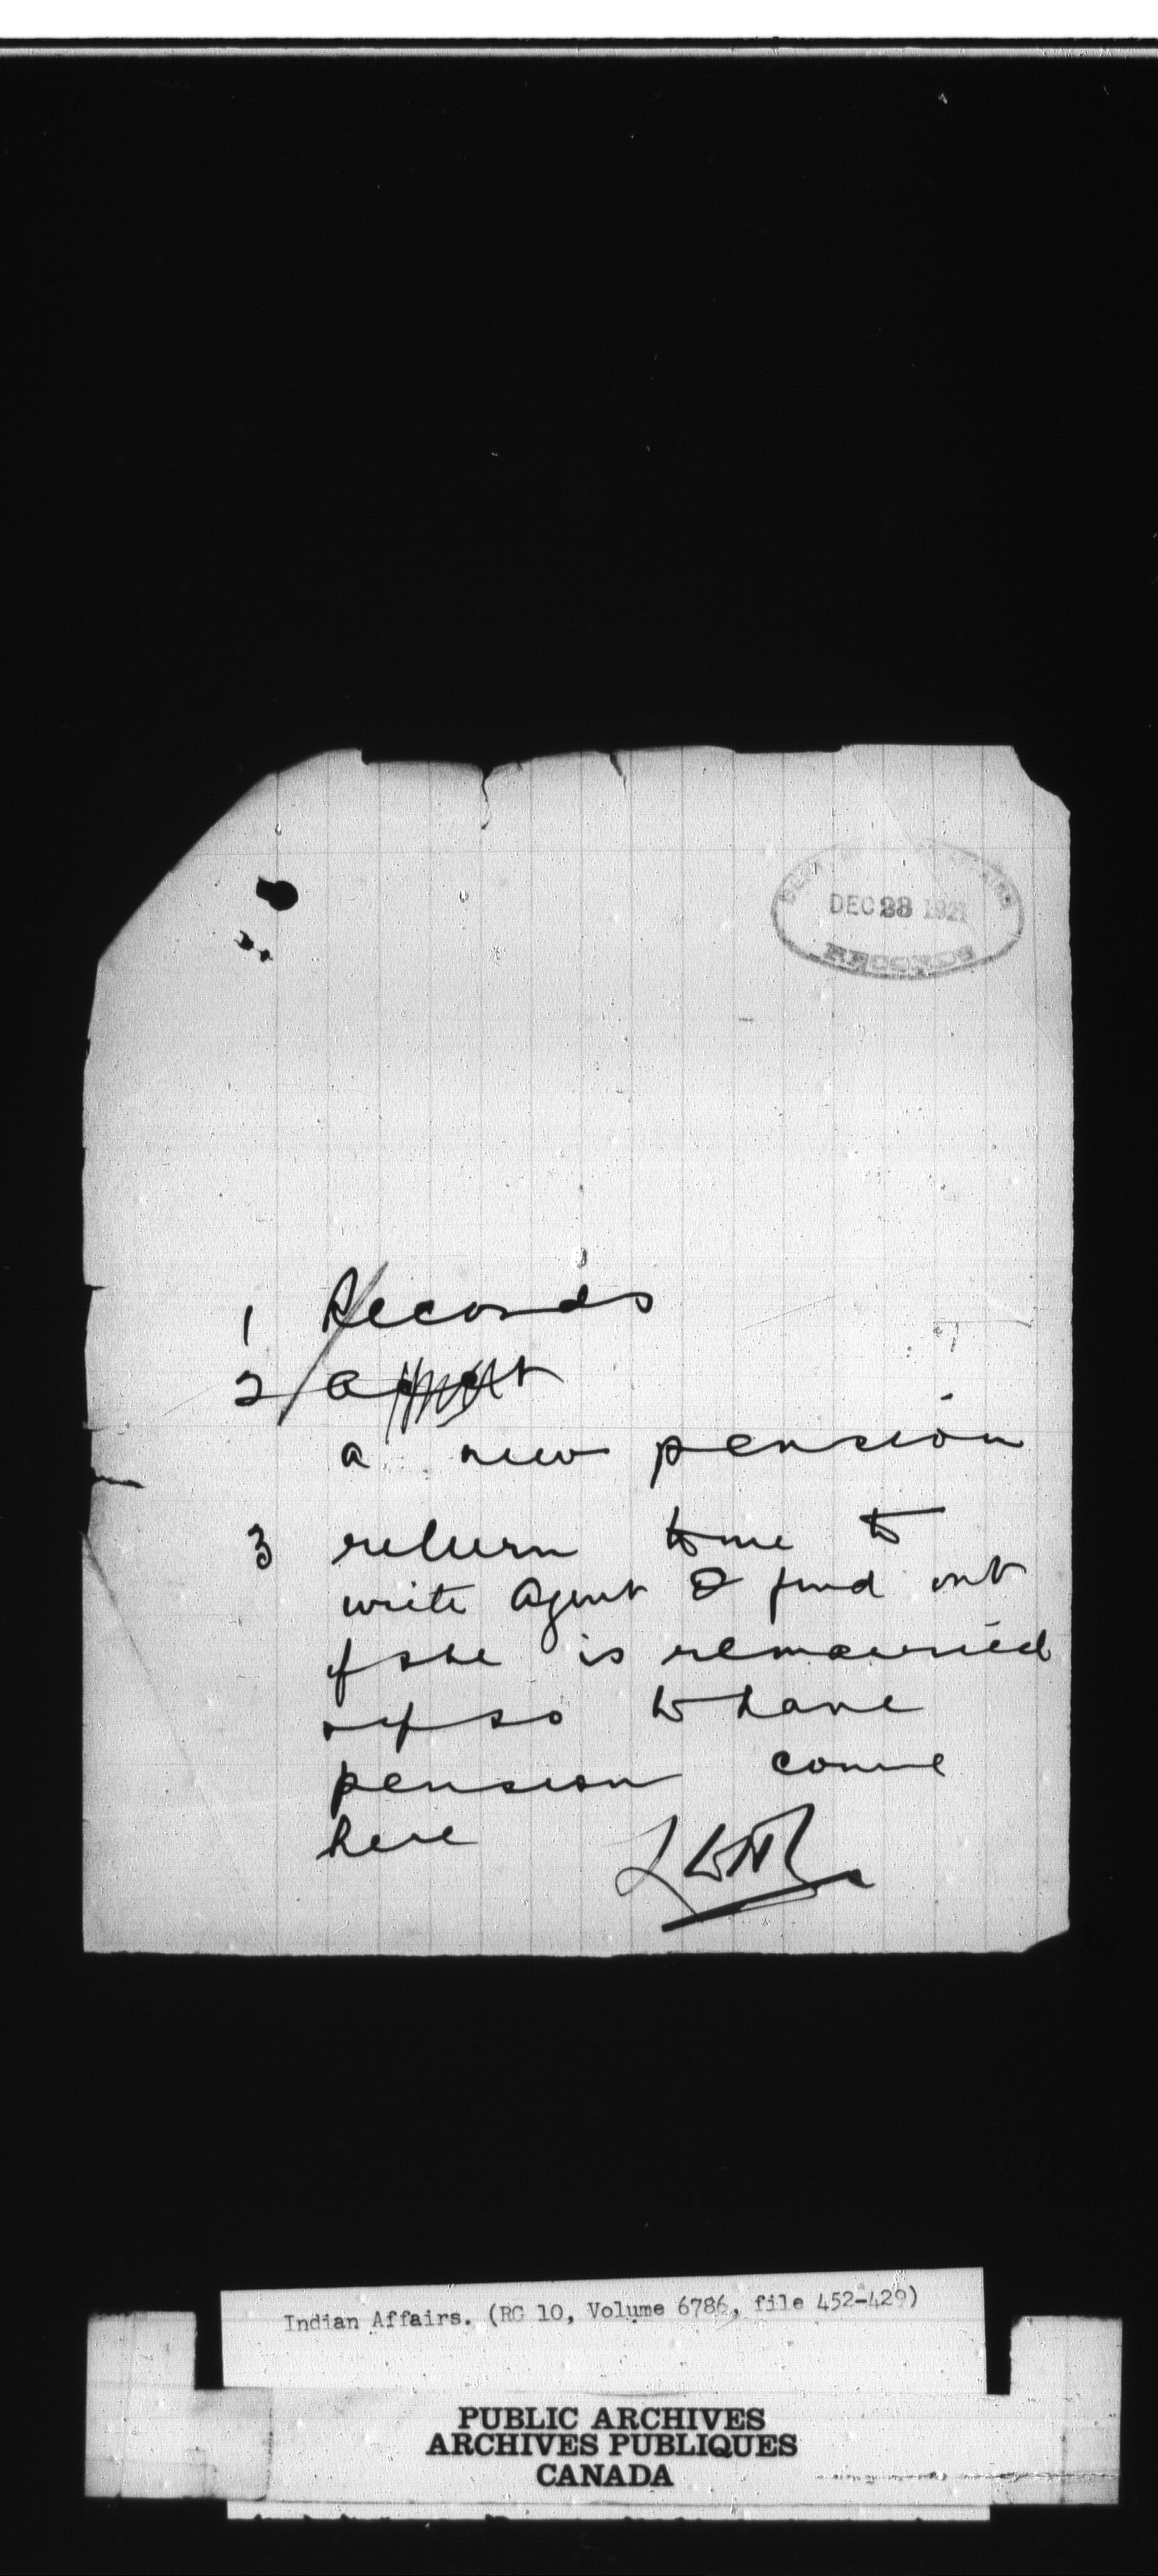 DEC 28 1921
RECORDS
1 Records
2 a
a new pension
3 return to me to
write Agent & find out
if she is remarried
& if so to have
pension come
here
Indian Affairs. (RG 10, Volume 6786, file 452-429)
PUBLIC ARCHIVES
ARCHIVES PUBLIQUES
CANADA